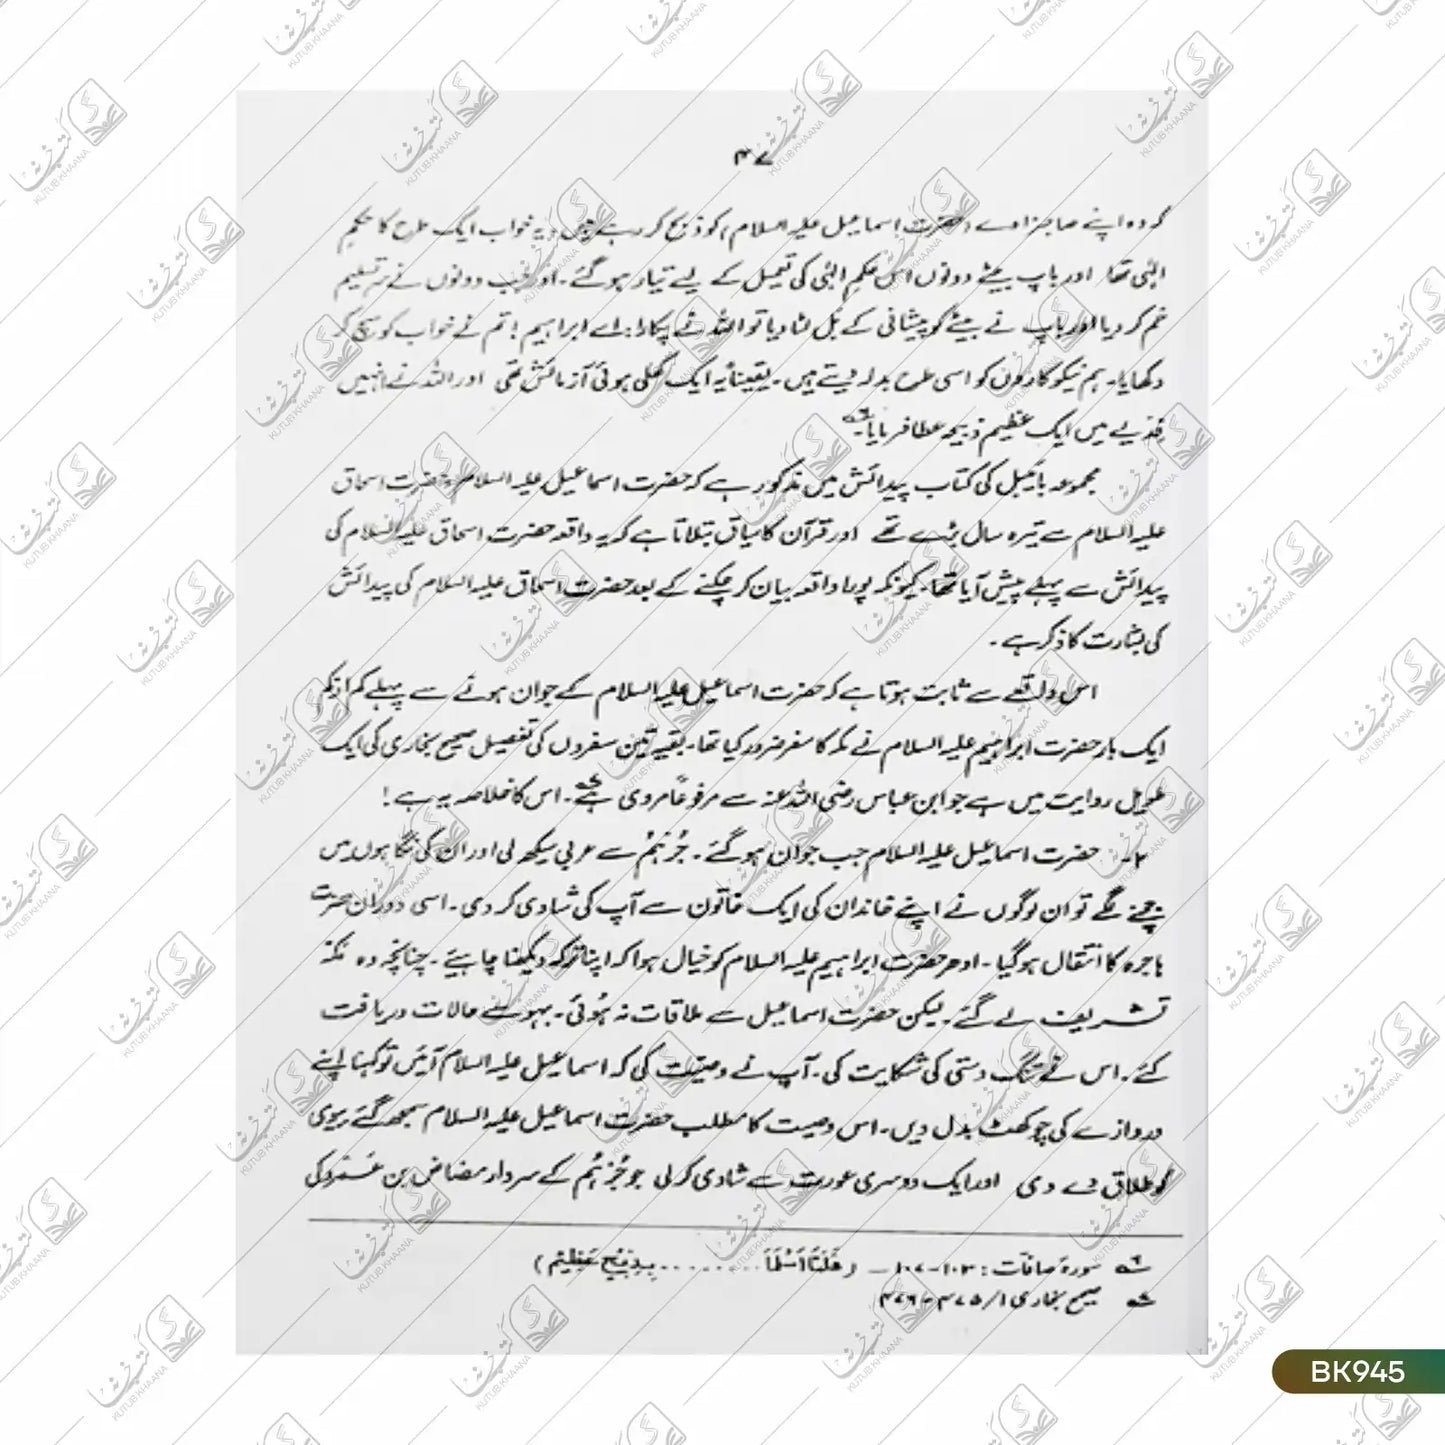 ۴۷
کہ وہ اپنے صاحبزادے (حضرت اسماعیل علیہ السلام) کو ذبح کر رہے ہیں، یہ خواب ایک طرح کا حکمِ
الٰہی تھا اور باپ بیٹے دونوں اس حکمِ الٰہی کی تعمیل کے لیے تیار ہو گئے۔ اور جب دونوں نے سر تسلیم
خم کر دیا اور باپ نے بیٹے کو پیشانی کے بَل لٹا دیا تو اللہ نے پکارا: اے ابراہیم! تم نے خواب کو سچ کر
دکھایا۔ ہم نیکوکاروں کو اسی طرح بدلہ دیتے ہیں۔ یقیناً یہ ایک کھلی ہوئی آزمائش تھی اور اللہ نے انہیں
فدیے میں ایک عظیم ذبیحہ عطا فرمایا۔ ۶
مجموعہ بائیبل کی کتاب پیدائش میں مذکور ہے کہ حضرت اسماعیل علیہ السلام، حضرت اسحاق
علیہ السلام سے تیرہ سال بڑے تھے اور قرآن کا سیاق بتلاتا ہے کہ یہ واقعہ حضرت اسحاق علیہ السلام کی
پیدائش سے پہلے پیش آیا تھا۔ کیونکہ پورا واقعہ بیان کر چکنے کے بعد حضرت اسحاق علیہ السلام کی پیدائش
کی بشارت کا ذکر ہے۔
اس واقعے سے ثابت ہوتا ہے کہ حضرت اسماعیل علیہ السلام کے جوان ہونے سے پہلے کم از کم
ایک بار حضرت ابراہیم علیہ السلام نے مکہ کا سفر ضرور کیا تھا۔ بقیہ تین سفروں کی تفصیل صحیح بخاری کی ایک
طویل روایت میں ہے جو ابن عباس رضی اللہ عنہ سے مرفوعاً مروی ہے۔ اس کا خلاصہ یہ ہے!
۲۔ حضرت اسماعیل علیہ السلام جب جوان ہو گئے۔ جُرْہُم سے عربی سیکھ لی اور ان کی نگاہوں میں
جچنے لگے تو ان لوگوں نے اپنے خاندان کی ایک خاتون سے آپ کی شادی کر دی۔ اسی دوران حضرت
ہاجرہ کا انتقال ہو گیا۔ ادھر حضرت ابراہیم علیہ السلام کو خیال ہوا کہ اپنا ترکہ دیکھنا چاہیئے۔ چنانچہ وہ مکہ
تشریف لے گئے۔ لیکن حضرت اسماعیل سے ملاقات نہ ہُوئی۔ بہو سے حالات دریافت
کئے۔ اس نے تنگ دستی کی شکایت کی۔ آپ نے وصیّت کی کہ اسماعیل علیہ السلام آئیں تو کہنا اپنے
دروازے کی چوکھٹ بدل دیں۔ اس وصیت کا مطلب حضرت اسماعیل علیہ السلام سمجھ گئے بیوی
کو طلاق دے دی اور ایک دوسری عورت سے شادی کر لی جو جُرْہُم کے سردار مضاض بن عَمْرو کی
۶ سورۃ صافات: ۱۰۳-۱۰۷ ـ (فَلَمَّا أَسْلَمَا ........ بِذِبْحٍ عَظِيْمٍ)
صحیح بخاری ۱/۴۷۵-۴۷۶
کتب خانہ
KUTUB KHAANA
BK945